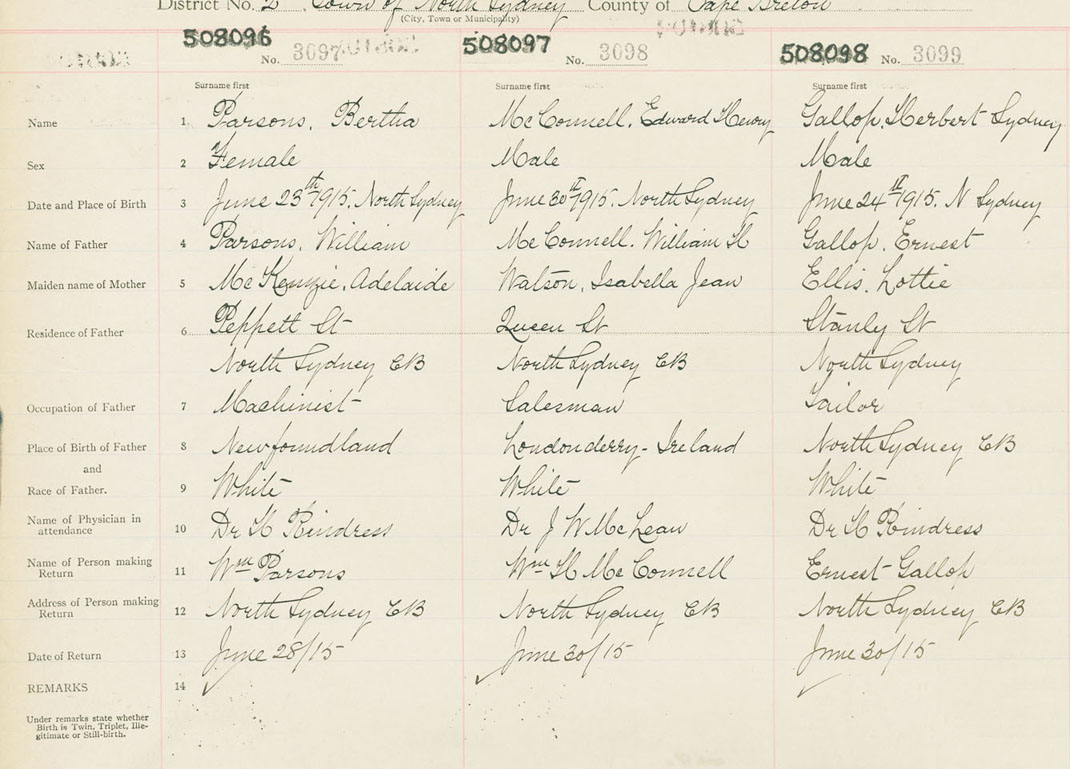 District No. 2 Town of North Sydney County of Cape Breton
(City, Town or Municipality)
508096 508097 508098
No. 3097 No. 3098 No. 3099
Surname first Surname first Surname first
Name 1 Parsons, Bertha McConnell, Edward Henry Gallop, Herbert Sydney
Sex 2 Female Male Male
Date and Place of Birth 3 June 23th 1915. North Sydney June 30th 1915. North Sydney June 24th 1915. N Sydney
Name of Father 4 Parsons, William McConnell. William H Gallop, Ernest
Maiden name of Mother 5 McKenzie, Adelaide Watson, Isabella Jean Ellis, Lottie
Residence of Father 6 Peppett St Queen St Stanly St
North Sydney CB North Sydney CB North Sydney
Occupation of Father 7 Machinist Salesman Tailor
Place of Birth of Father 8 Newfoundland Londonderry-Ireland North Sydney CB
and
Race of Father. 9 White White White
Name of Physician in
attendance 10 Dr H Rindress Dr J W McLean Dr H Rindress
Name of Person making
Return 11 Wm Parsons Wm H McConnell Ernest Gallop
Address of Person making
Return 12 North Sydney CB North Sydney CB North Sydney CB
Date of Return 13 June 28/15 June 30/15 June 30/15
REMARKS 14
Under remarks state whether
Birth is Twin, Triplet, Ille-
gitimate or Still-birth.